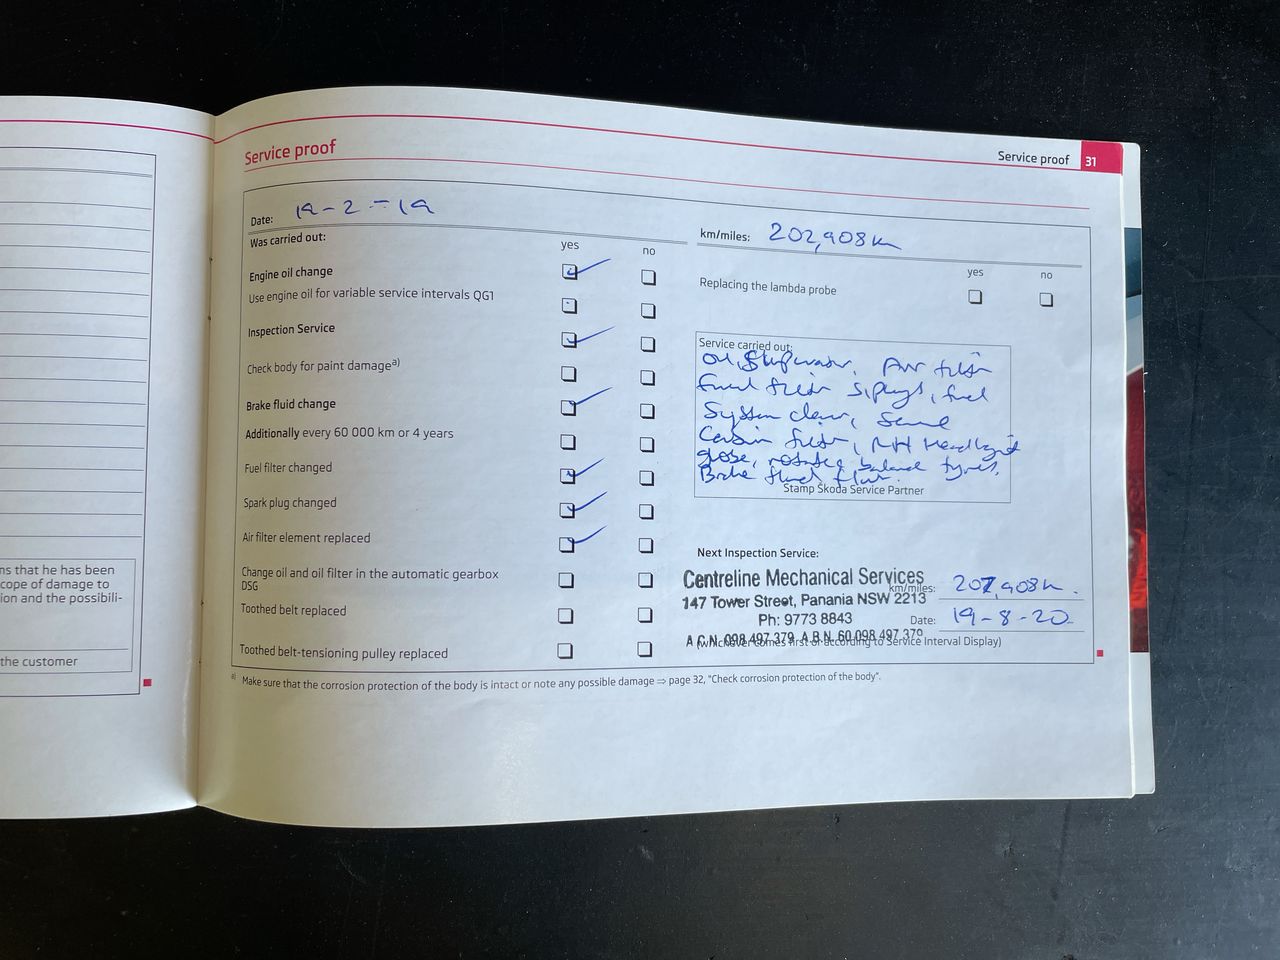 Service proof
Service proof 31
Date: 19-2-19
km/miles: 202,908km
Was carried out:
yes no
Engine oil change
Use engine oil for variable service intervals QG1
Inspection Service
Check body for paint damage a)
Brake fluid change
Additionally every 60 000 km or 4 years
Fuel filter changed
Spark plug changed
Air filter element replaced
Change oil and oil filter in the automatic gearbox
DSG
Toothed belt replaced
Toothed belt-tensioning pulley replaced
yes no
Replacing the lambda probe
Service carried out:
Oil, Air filter
Fuel filter S,plugs, fuel
System clean,
Cabin filter, RH Headlight
globe, rotate, balance tyres,
Brake fluid flush.
Stamp Škoda Service Partner
Next Inspection Service:
Centreline Mechanical Services
km/miles: 207,908km.
147 Tower Street, Panania NSW 2213
Ph: 9773 8843
Date: 19-8-20
A.C.N. 098 497 379 A.B.N. 60 098 497 379
(whichever comes first or according to Service Interval Display)
a) Make sure that the corrosion protection of the body is intact or note any possible damage ⇒ page 32, "Check corrosion protection of the body".
ns that he has been
cope of damage to
ion and the possibili-
the customer